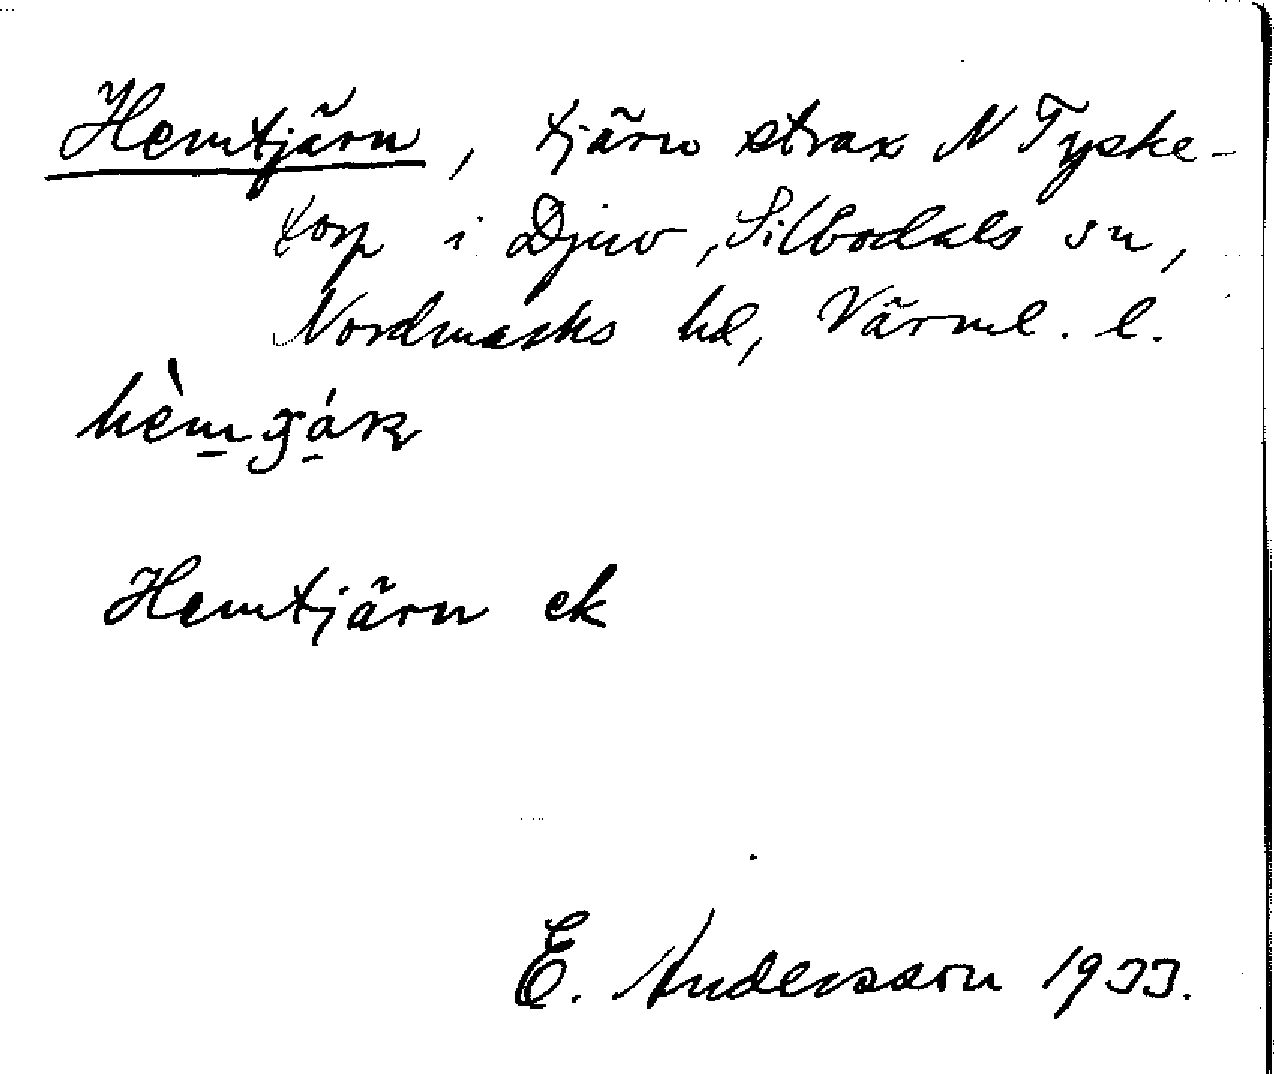 Hemtjärn, tjärn strax N Tyske-
torp i Djuv, Silbodals sn,
Nordmarks hd, Värml. l.
Hemtjärn ek
E. Andersson 1933.